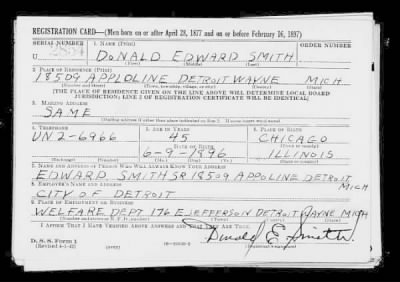 REGISTRATION CARD—(Men born on or after April 28, 1877 and on or before February 16, 1897)
SERIAL NUMBER 1. NAME (Print) ORDER NUMBER
U 2854 DONALD EDWARD SMITH
(First) (Middle) (Last)
2. PLACE OF RESIDENCE (Print)
18509 APPLOLINE DETROIT WAYNE MICH
(Number and street) (Town, township, village, or city) (County) (State)
[THE PLACE OF RESIDENCE GIVEN ON THE LINE ABOVE WILL DETERMINE LOCAL BOARD
JURISDICTION; LINE 2 OF REGISTRATION CERTIFICATE WILL BE IDENTICAL]
3. MAILING ADDRESS
SAME
[Mailing address if other than place indicated on line 2. If same insert word same]
4. TELEPHONE 5. AGE IN YEARS 6. PLACE OF BIRTH
UN 2-6966 45 CHICAGO
DATE OF BIRTH (Town or county)
6-9-1896 ILLINOIS
(Exchange) (Number) (Mo.) (Day) (Yr.) (State or country)
7. NAME AND ADDRESS OF PERSON WHO WILL ALWAYS KNOW YOUR ADDRESS
EDWARD SMITH SR 18509 APPOLINE DETROIT MICH
8. EMPLOYER'S NAME AND ADDRESS
CITY OF DETROIT
9. PLACE OF EMPLOYMENT OR BUSINESS
WELFARE DEPT 176 E JEFFERSON DETROIT WAYNE MICH
(Number and street or R. F. D. number) (Town) (County) (State)
I AFFIRM THAT I HAVE VERIFIED ABOVE ANSWERS AND THAT THEY ARE TRUE.
D. S. S. Form 1
(Revised 4-1-42) (over) Donald E. Smith